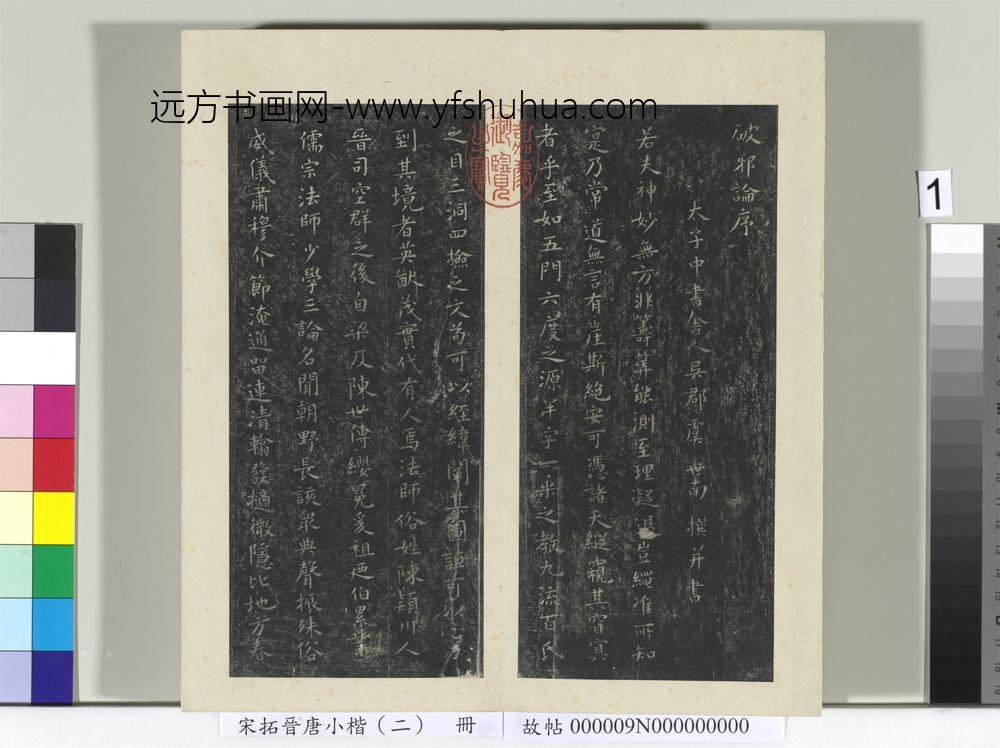 远方书画网-www.yfshuhua.com
破邪論序
太子中書舍人吳郡虞世南撰并書
若夫神妙無方非籌筭能測至理凝邈豈繩准所知
寔乃常道無言有崖斯絕安可憑諸天縱窺其窅冥
者乎至如五門六度之源半字一乘之教九流百氏
之目三洞四撿之文苟可以經緯闡其圖詎可以
到其境者英猷茂實代有人焉法師俗姓陳潁川人
晉司空群之後自梁及陳世傳纓冕爰祖及伯累業
儒宗法師少學三論名聞朝野長該衆典聲振殊俗
威儀肅穆介節淹通留連清翰發擿微隱比地方春
嘉慶御覽之寶
1
宋拓晉唐小楷（二） 冊
故帖 000009N000000000